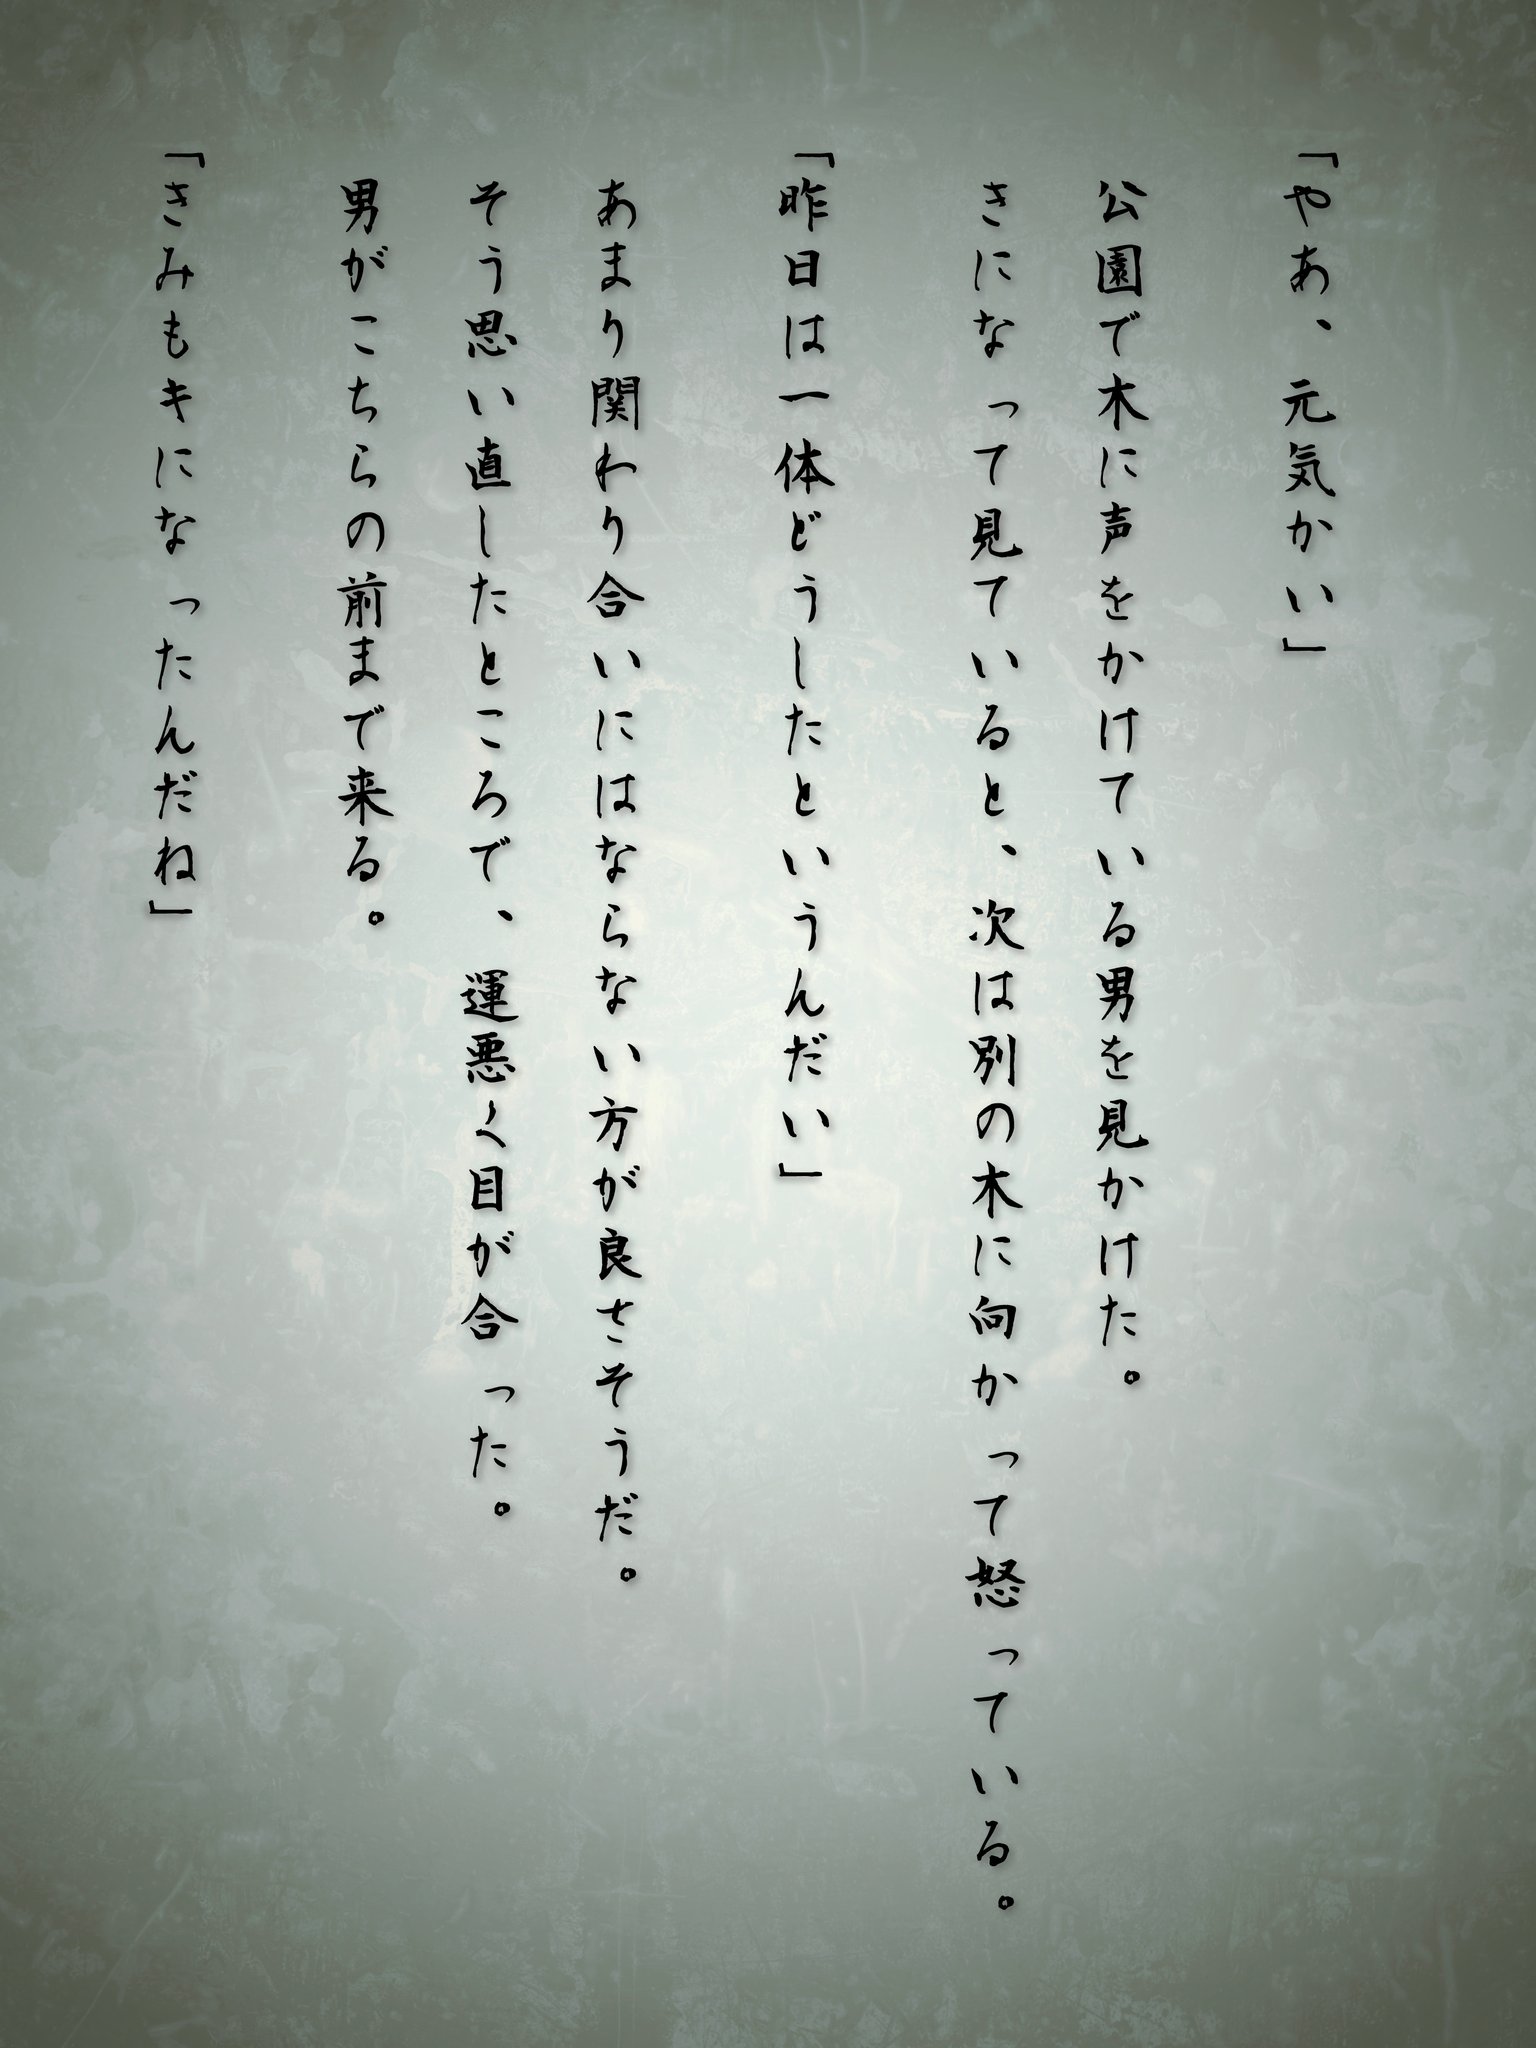 「やあ、元気かい」
公園で木に声をかけている男を見かけた。
きになって見ていると、次は別の木に向かって怒っている。
「昨日は一体どうしたというんだい」
あまり関わり合いにはならない方が良さそうだ。
そう思い直したところで、運悪く目が合った。
男がこちらの前まで来る。
「きみもキになったんだね」